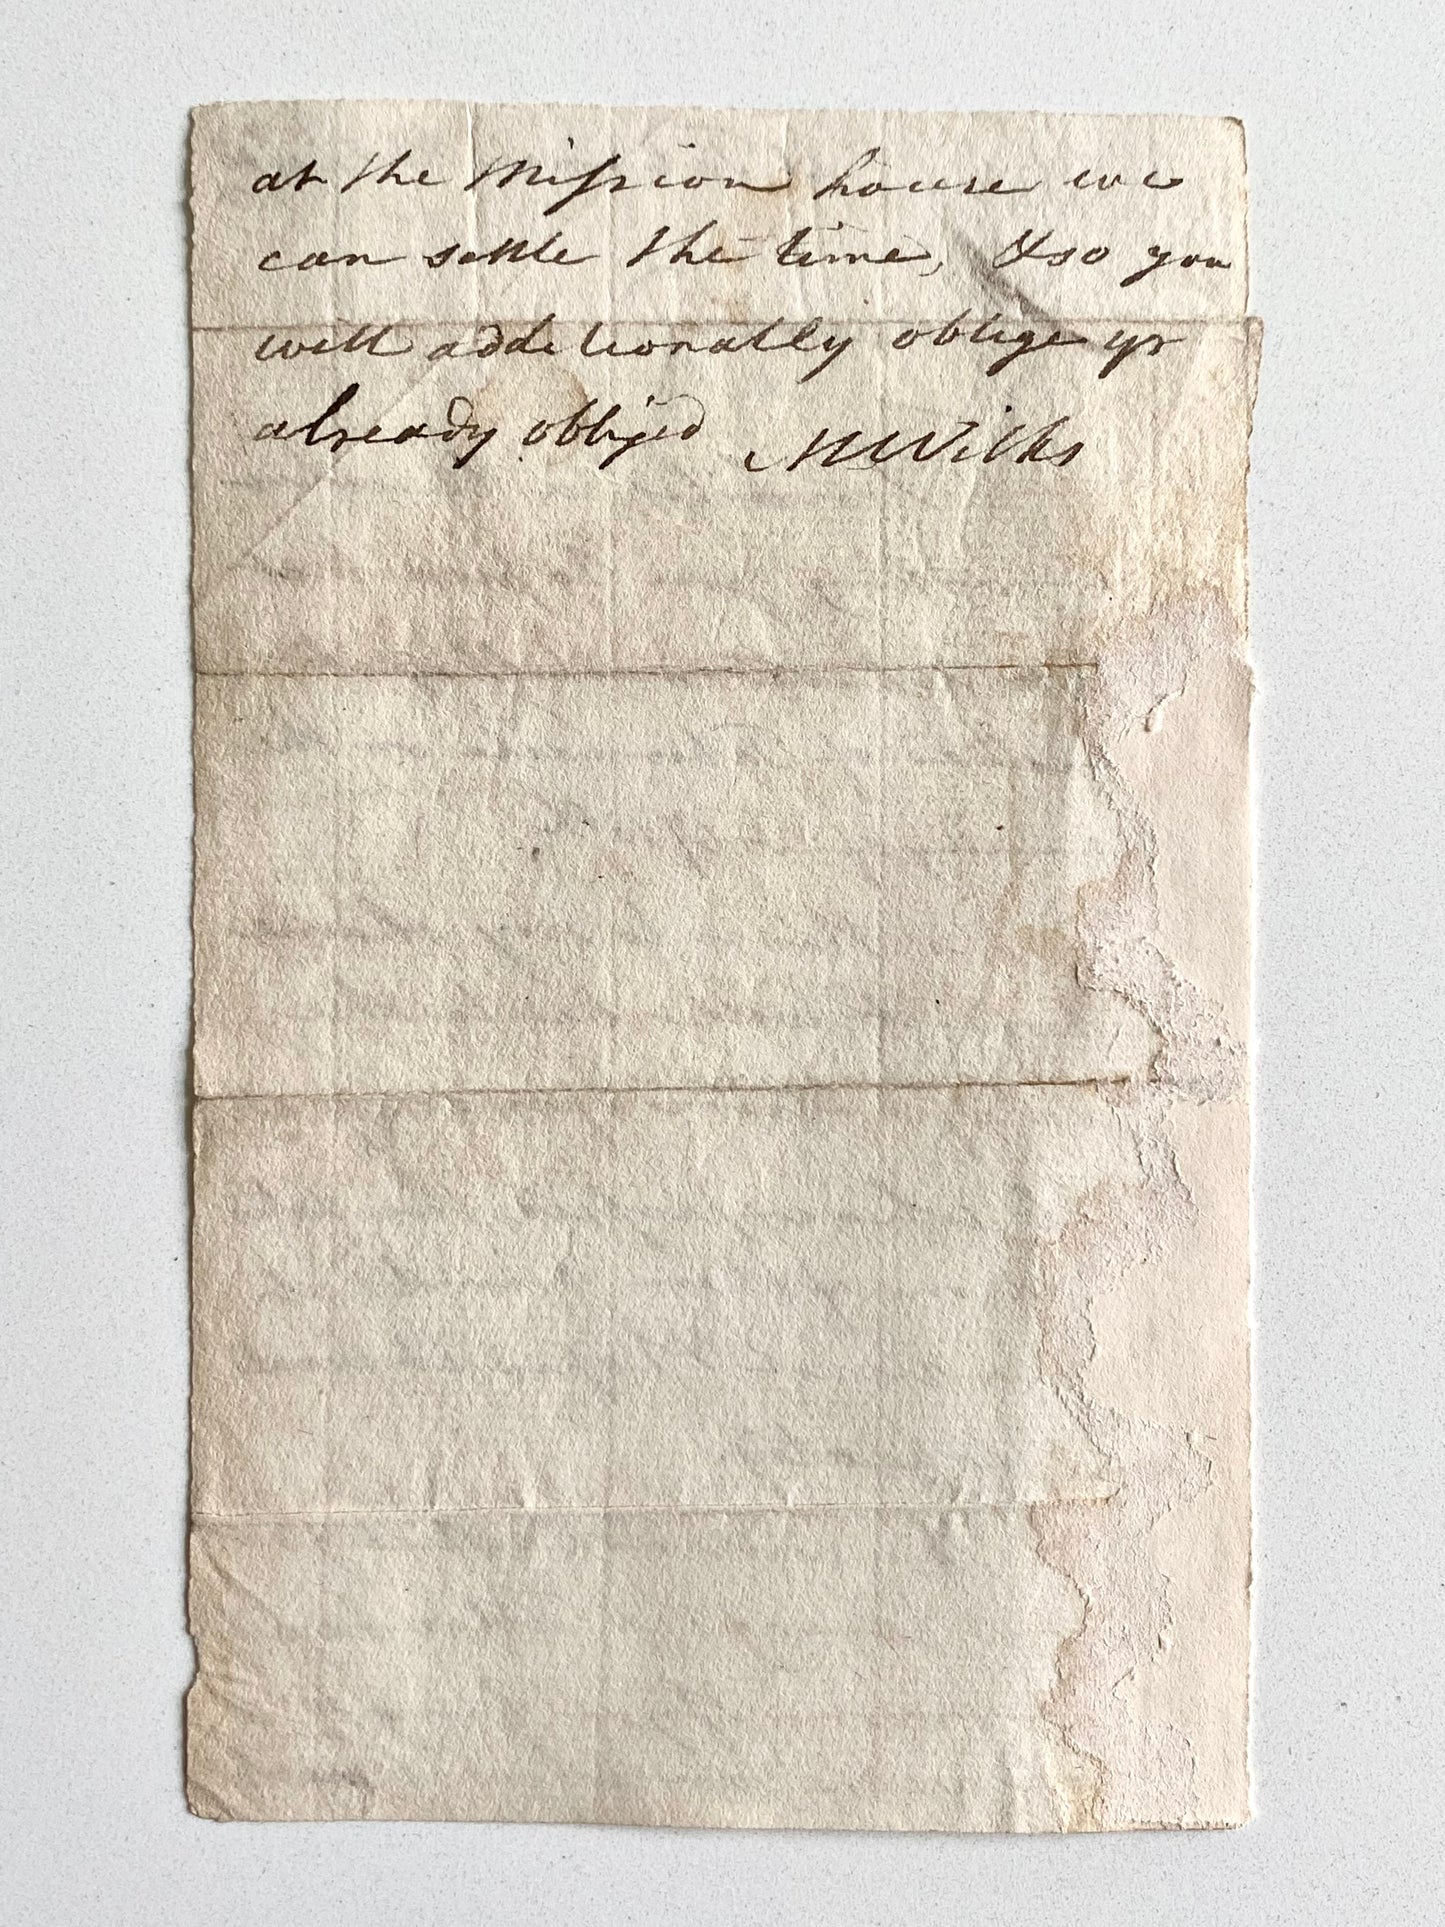 at the Miſsion house we
can settle the time, & so you
will additionally oblige yr
already obliged MWilks